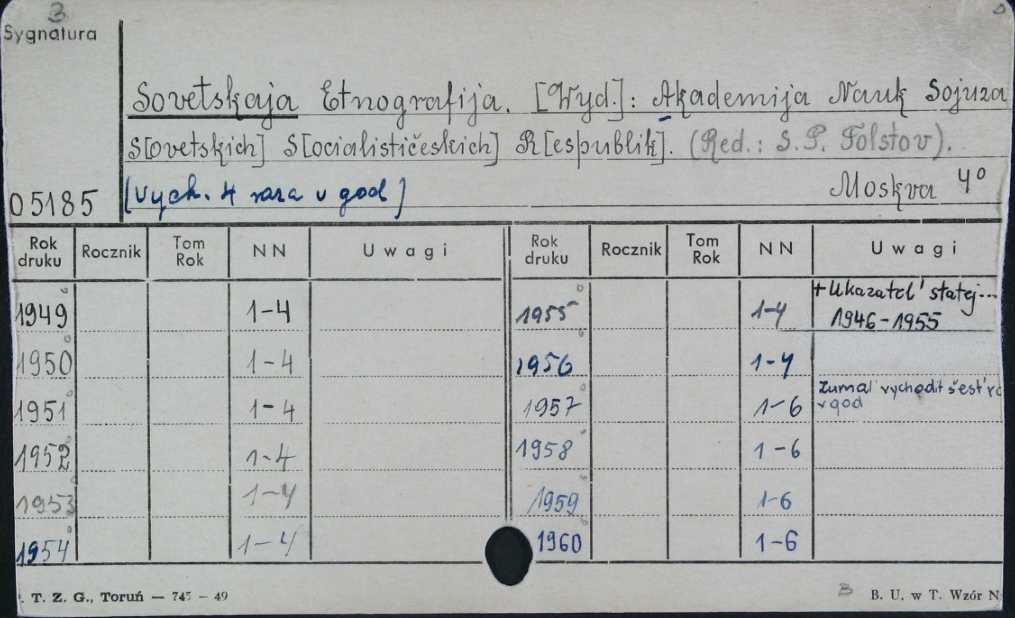 3
Sygnatura
Sovetskaja Etnografija. [Wyd.]: Akademija Nauk Sojuza
S[ovetskich] S[ocialističeskich] R[espublik]. (Red.: S.P. Tolstov).
05185 [Vych. 4 raza v god] Moskva 4°
Rok druku Rocznik Tom Rok NN Uwagi Rok druku Rocznik Tom Rok NN Uwagi
1949 1-4 1955 1-4 + Ukazatel' statej...
1946-1955
1950 1-4 1956 1-4
1951 1-4 1957 1-6 Žurnal vychodit šest' ra
v god
1952 1-4 1958 1-6
1953 1-4 1959 1-6
1954 1-4 1960 1-6
. T. Z. G., Toruń — 745 — 49 B B. U. w T. Wzór N